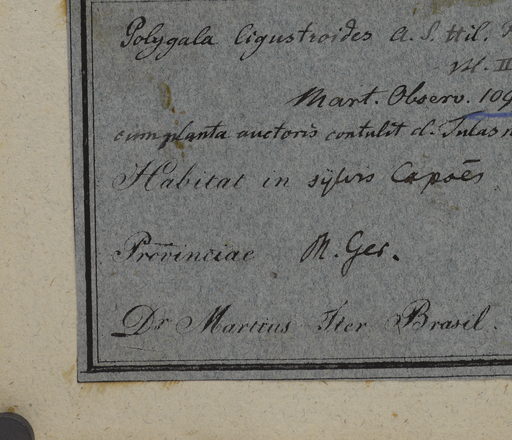 Polygala ligustroides A. S. Hil.
Mart. Observ. 109
cum planta auctoris contulit cl. Tulasn
Habitat in sylvis Capoẽs
Provinciae M. Ger.
Dr Martius Iter Brasil.